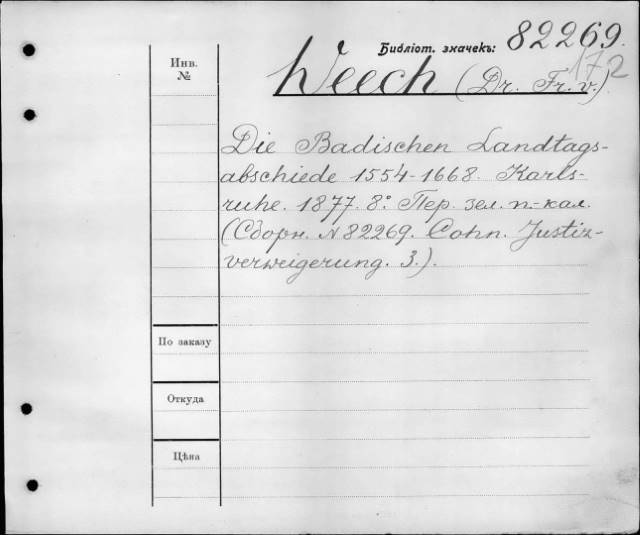 Библіот. значекъ: 82269.
172
Инв.
№
Weech (Dr. Fr. v.)
Die Badischen Landtags-
abschiede 1554-1668. Karls-
ruhe. 1877. 8º Пер. зел. п-кал.
(Сборн. № 82269. Cohn. Justiz-
verweigerung. 3.).
По заказу
Откуда
Цѣна